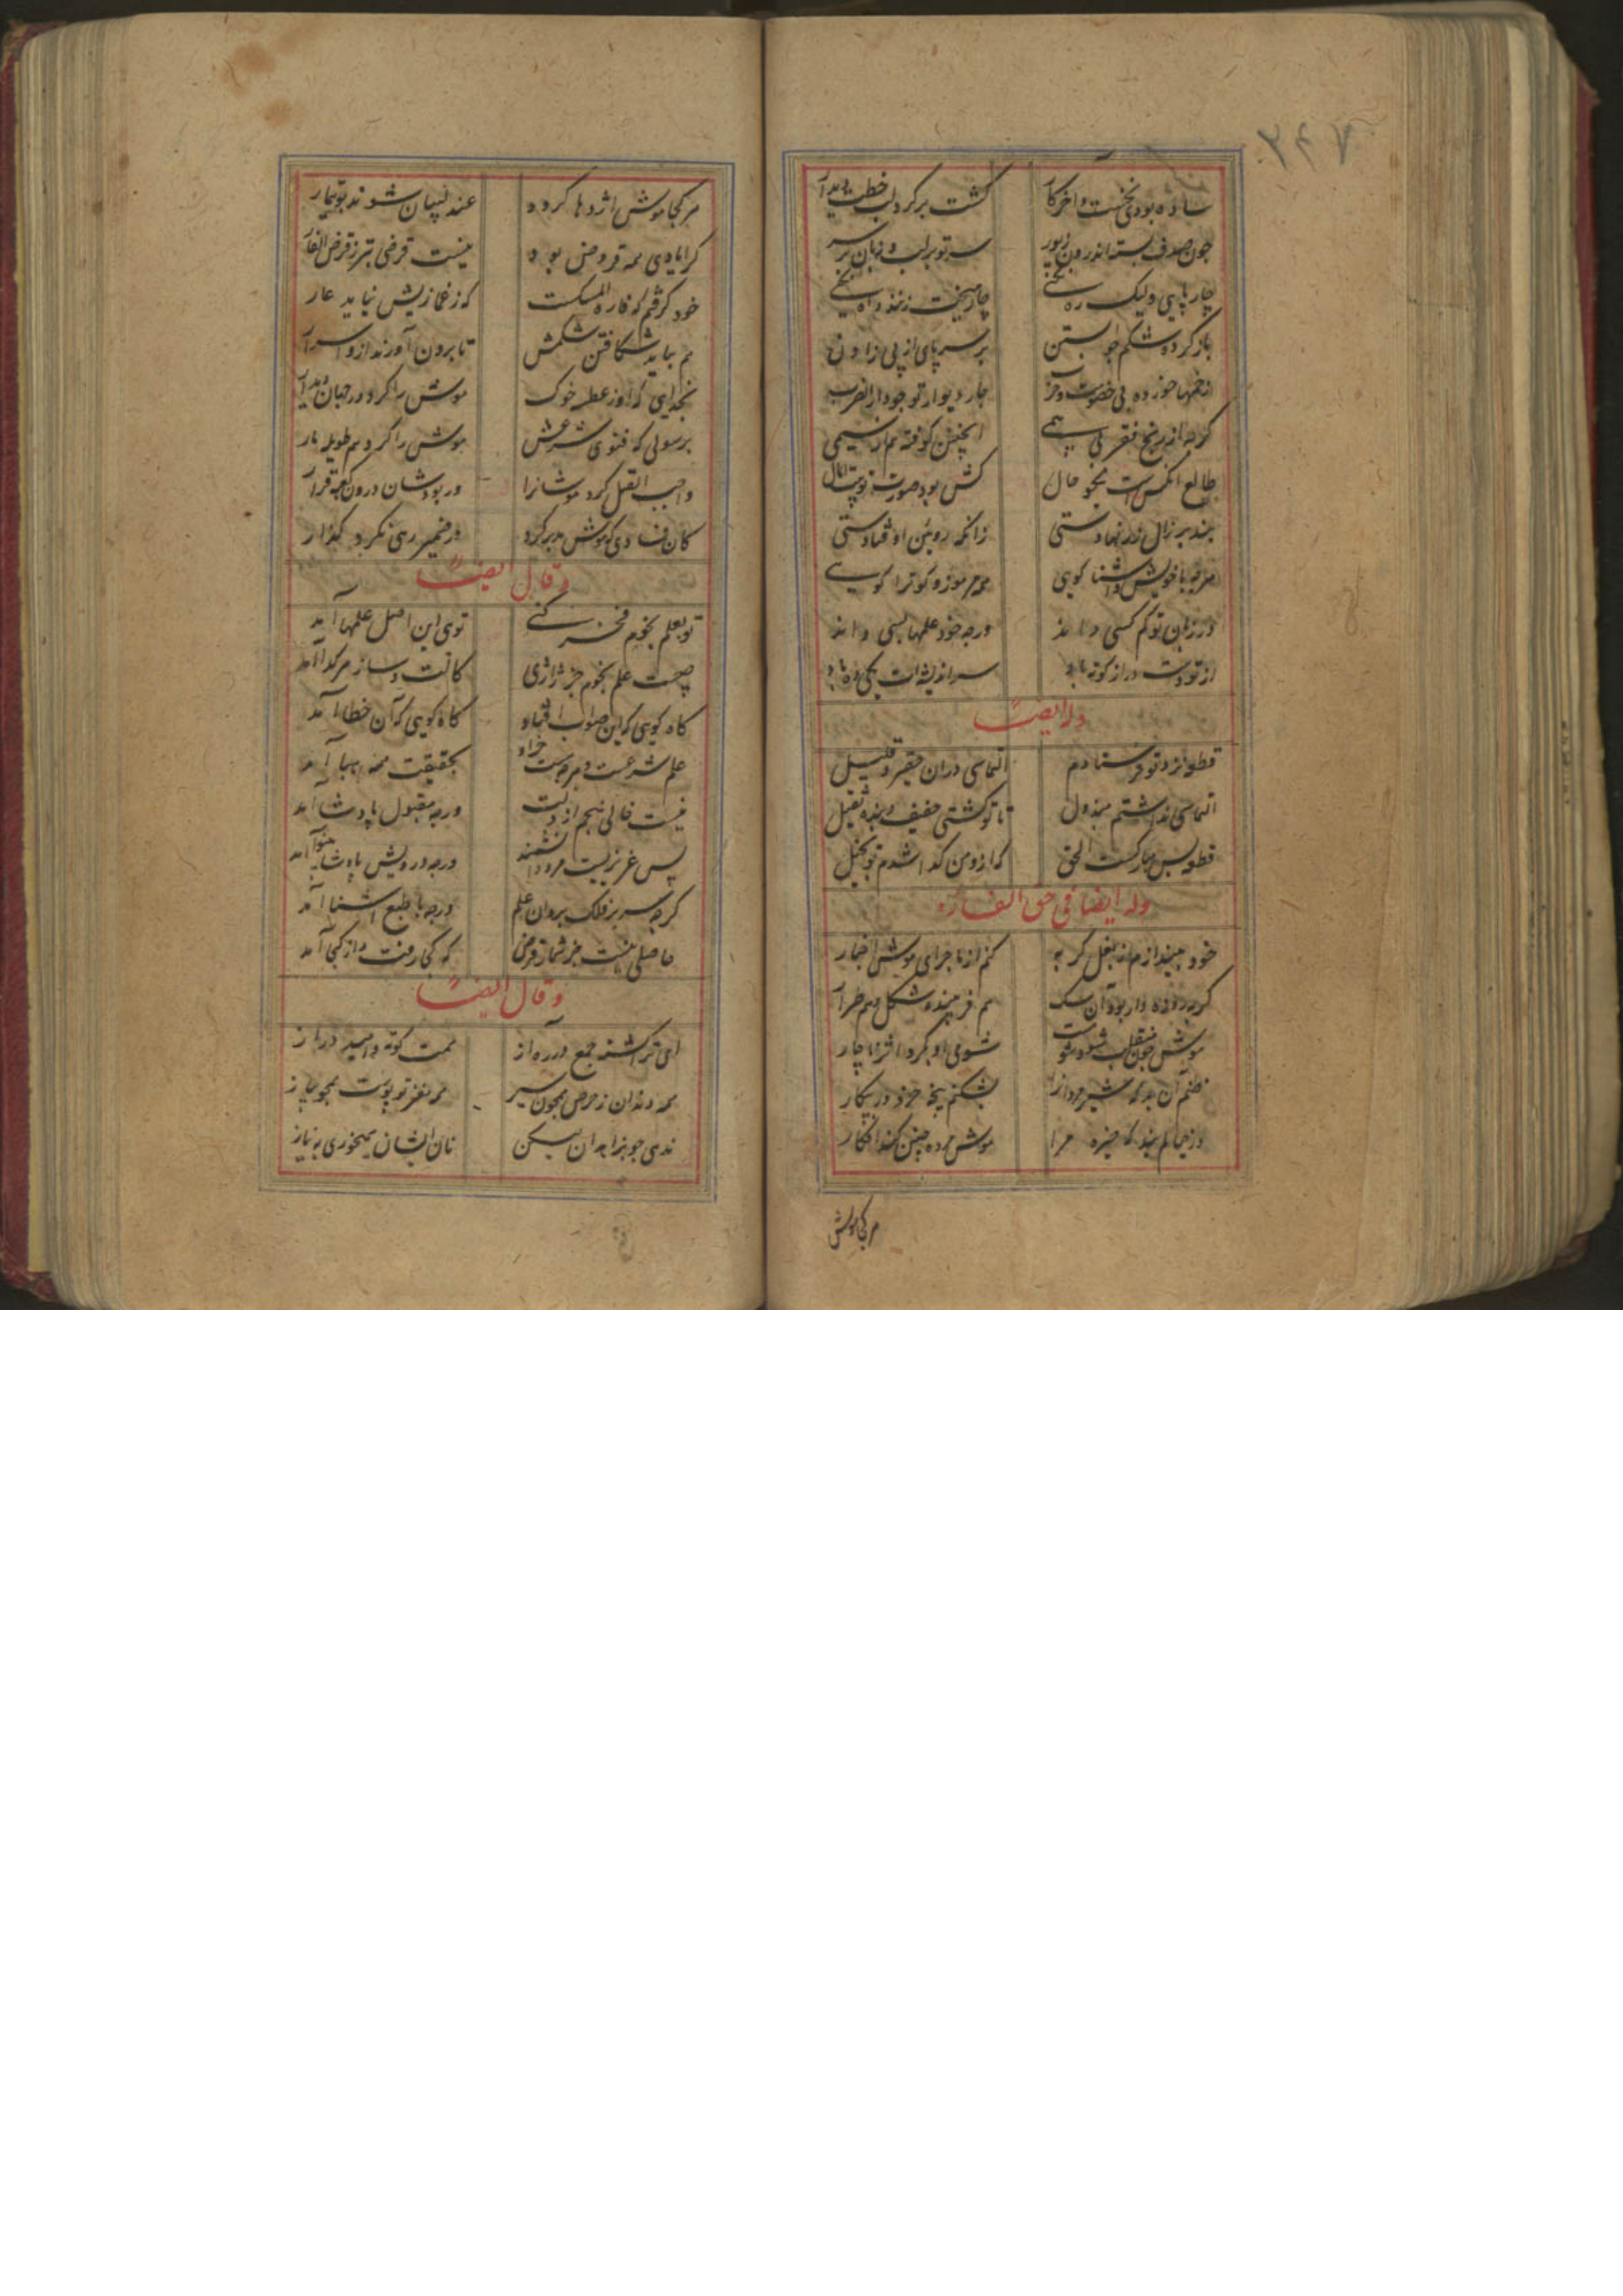 ۲۴۷
ساده بودی نخست و آخر کار گشت بر گرد لب خطت دیدار
چون صدف بسته اندرون زیور سر تو بر لب و زبان بر سر
چار پایی ولیک ره چار میخت زنند
باز کرده شکم چو آبستن بر سر پای از پی زادن
زخمها خورده بی خصومت و چار دیوار تو چو دار الضرب
گرچه از رنج فقر بی اینچنین کوفته هم از سیمی
طالع آنکس است نیکو فال کش بود صورت تو بیت المال
بند بر زال زر نهادستی زانکه رویین او فتادستی
هرچه با خویش آشنا گویی هم مرموز گویی
در زبان تو کم کسی داند ورچه خود علمها بسی داند
از تو دست دراز کوته باد سر اندیشه‌ات
وله ایضاً
قطعه‌ای نزد تو فرستادم التماسی دران حقیر و قلیل
التماسی نداشتم مبذول تا تو گشتی خفیف و بنده ثقیل
قطعه بس مبارکست الحق که ازو من گدا شدم تو بخیل
وله ایضا فی حق الفاره
خود بیندازم از بغل گربه کنم از ماجرای موش اخبار
گربه رو ده دار بود آن سگ هم فریبنده شکل و هم طرار
موش چون منقلب شود شومست شومی او کرد اثر ناچار
نظم آن بد که شیر مردانرا بشکنم پنجه خرد در پیکار
موش مرده چنین کند افکار
هر کجا موش
هر کجا موش اژدها گردد عندلیبان شوند بوتیمار
گر ایادی همه قروض بود نیست قرضی بتر ز قرض الفار
خود گرفتم که فاره المسکست که ز غمازیش نیاید عار
هم بباید شکافتن شکمش تا برون آورند ازو اسرار
بخدایی که او ز عطسه خوک موش را کرد در جهان دیدار
برسولی که فتوی شرعش موش را کرد هم طویله مار
واجب القتل کرد موشانرا ور بود شان درون کعبه قرار
کان فسادی که موش مدبر کرد در ضمیر رهی نکرد گذار
و قال ایضاً
تو بعلم نجوم فخر کنی توی این اصل علمها آمد
چیست علم نجوم جز ژاژی کالت و ساز هر گدا آمد
گاه گویی که این صواب افتاد گاه گویی که آن خطا آمد
علم شرعست و هرچه هست جز او بحقیقت همه هبا آمد
نیست خالی منجم از ذلت ورچه مقبول پادشا آمد
پس عزیزست مرد دانشمند ورچه درویش
گرچه سر بر فلک برد آن علم ورچه با طبع آشنا آمد
حاصلی نیست جز شمار قرض که کجا رفت و از کجا آمد
و قال ایضاً
ای ترا گشته جمع در ره آز همت کوته و امید دراز
همه دندان ز حرص همچون سیر همه مغز تو پوست همچو پیاز
ندهی جو بزاهدان لیکن نان ایشان همی خوری به نیاز